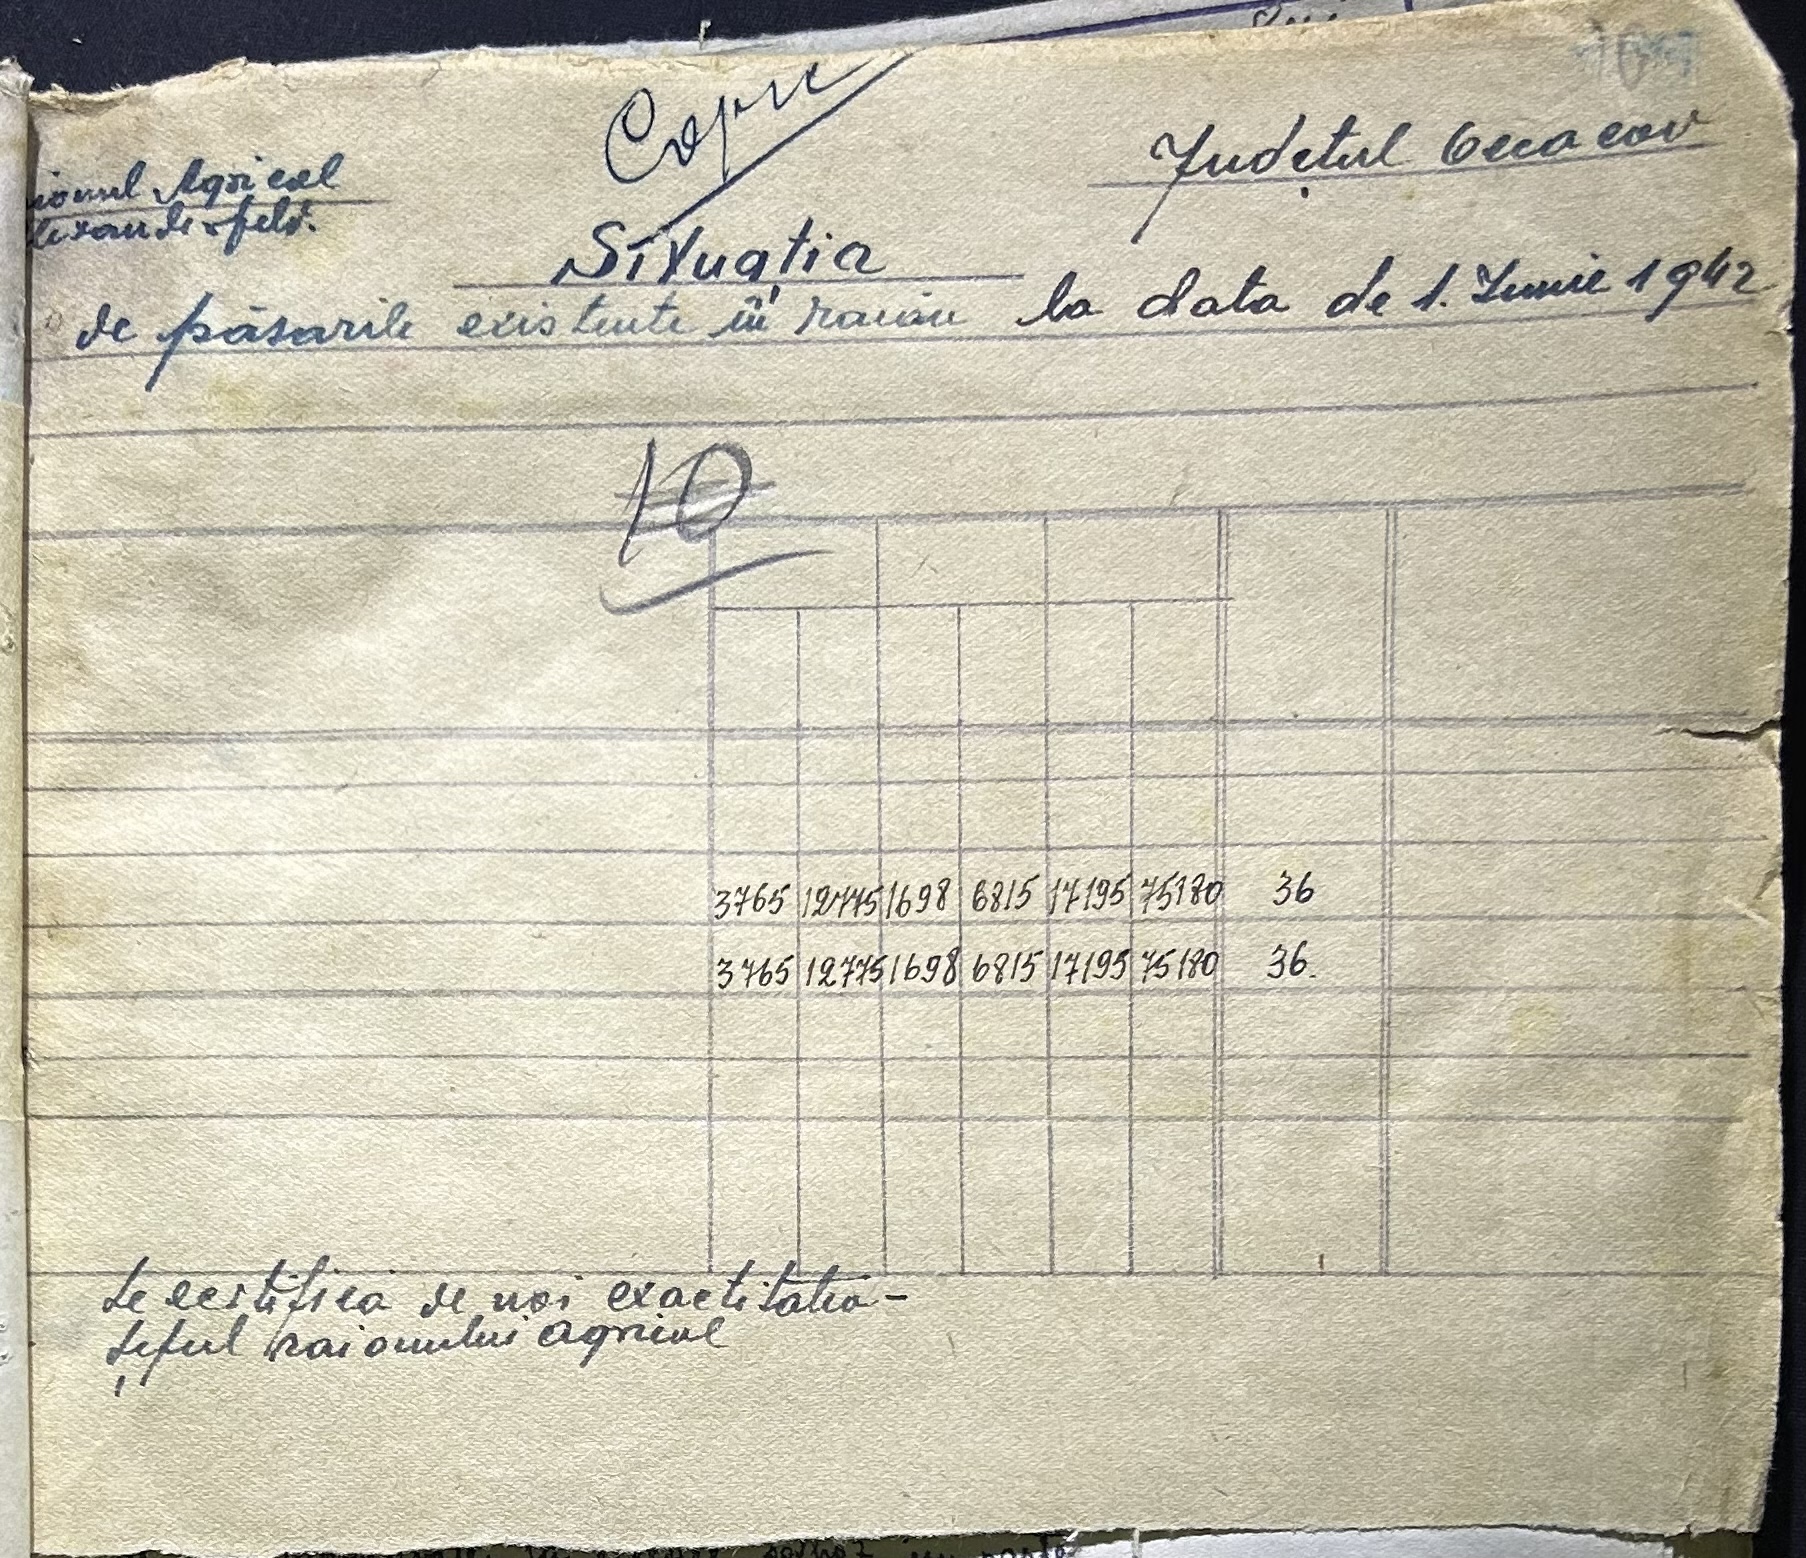 Copie
Județul Oceacov
ionul Agricol
lexanderfeld.
Situația
de păsările existente în raion la data de 1. Iunie 1942
10
3765 12775 1698 6815 17195 75180 36
3765 12775 1698 6815 17195 75180 36.
Se certifica de noi exactitatea -
Șeful raionului agricol